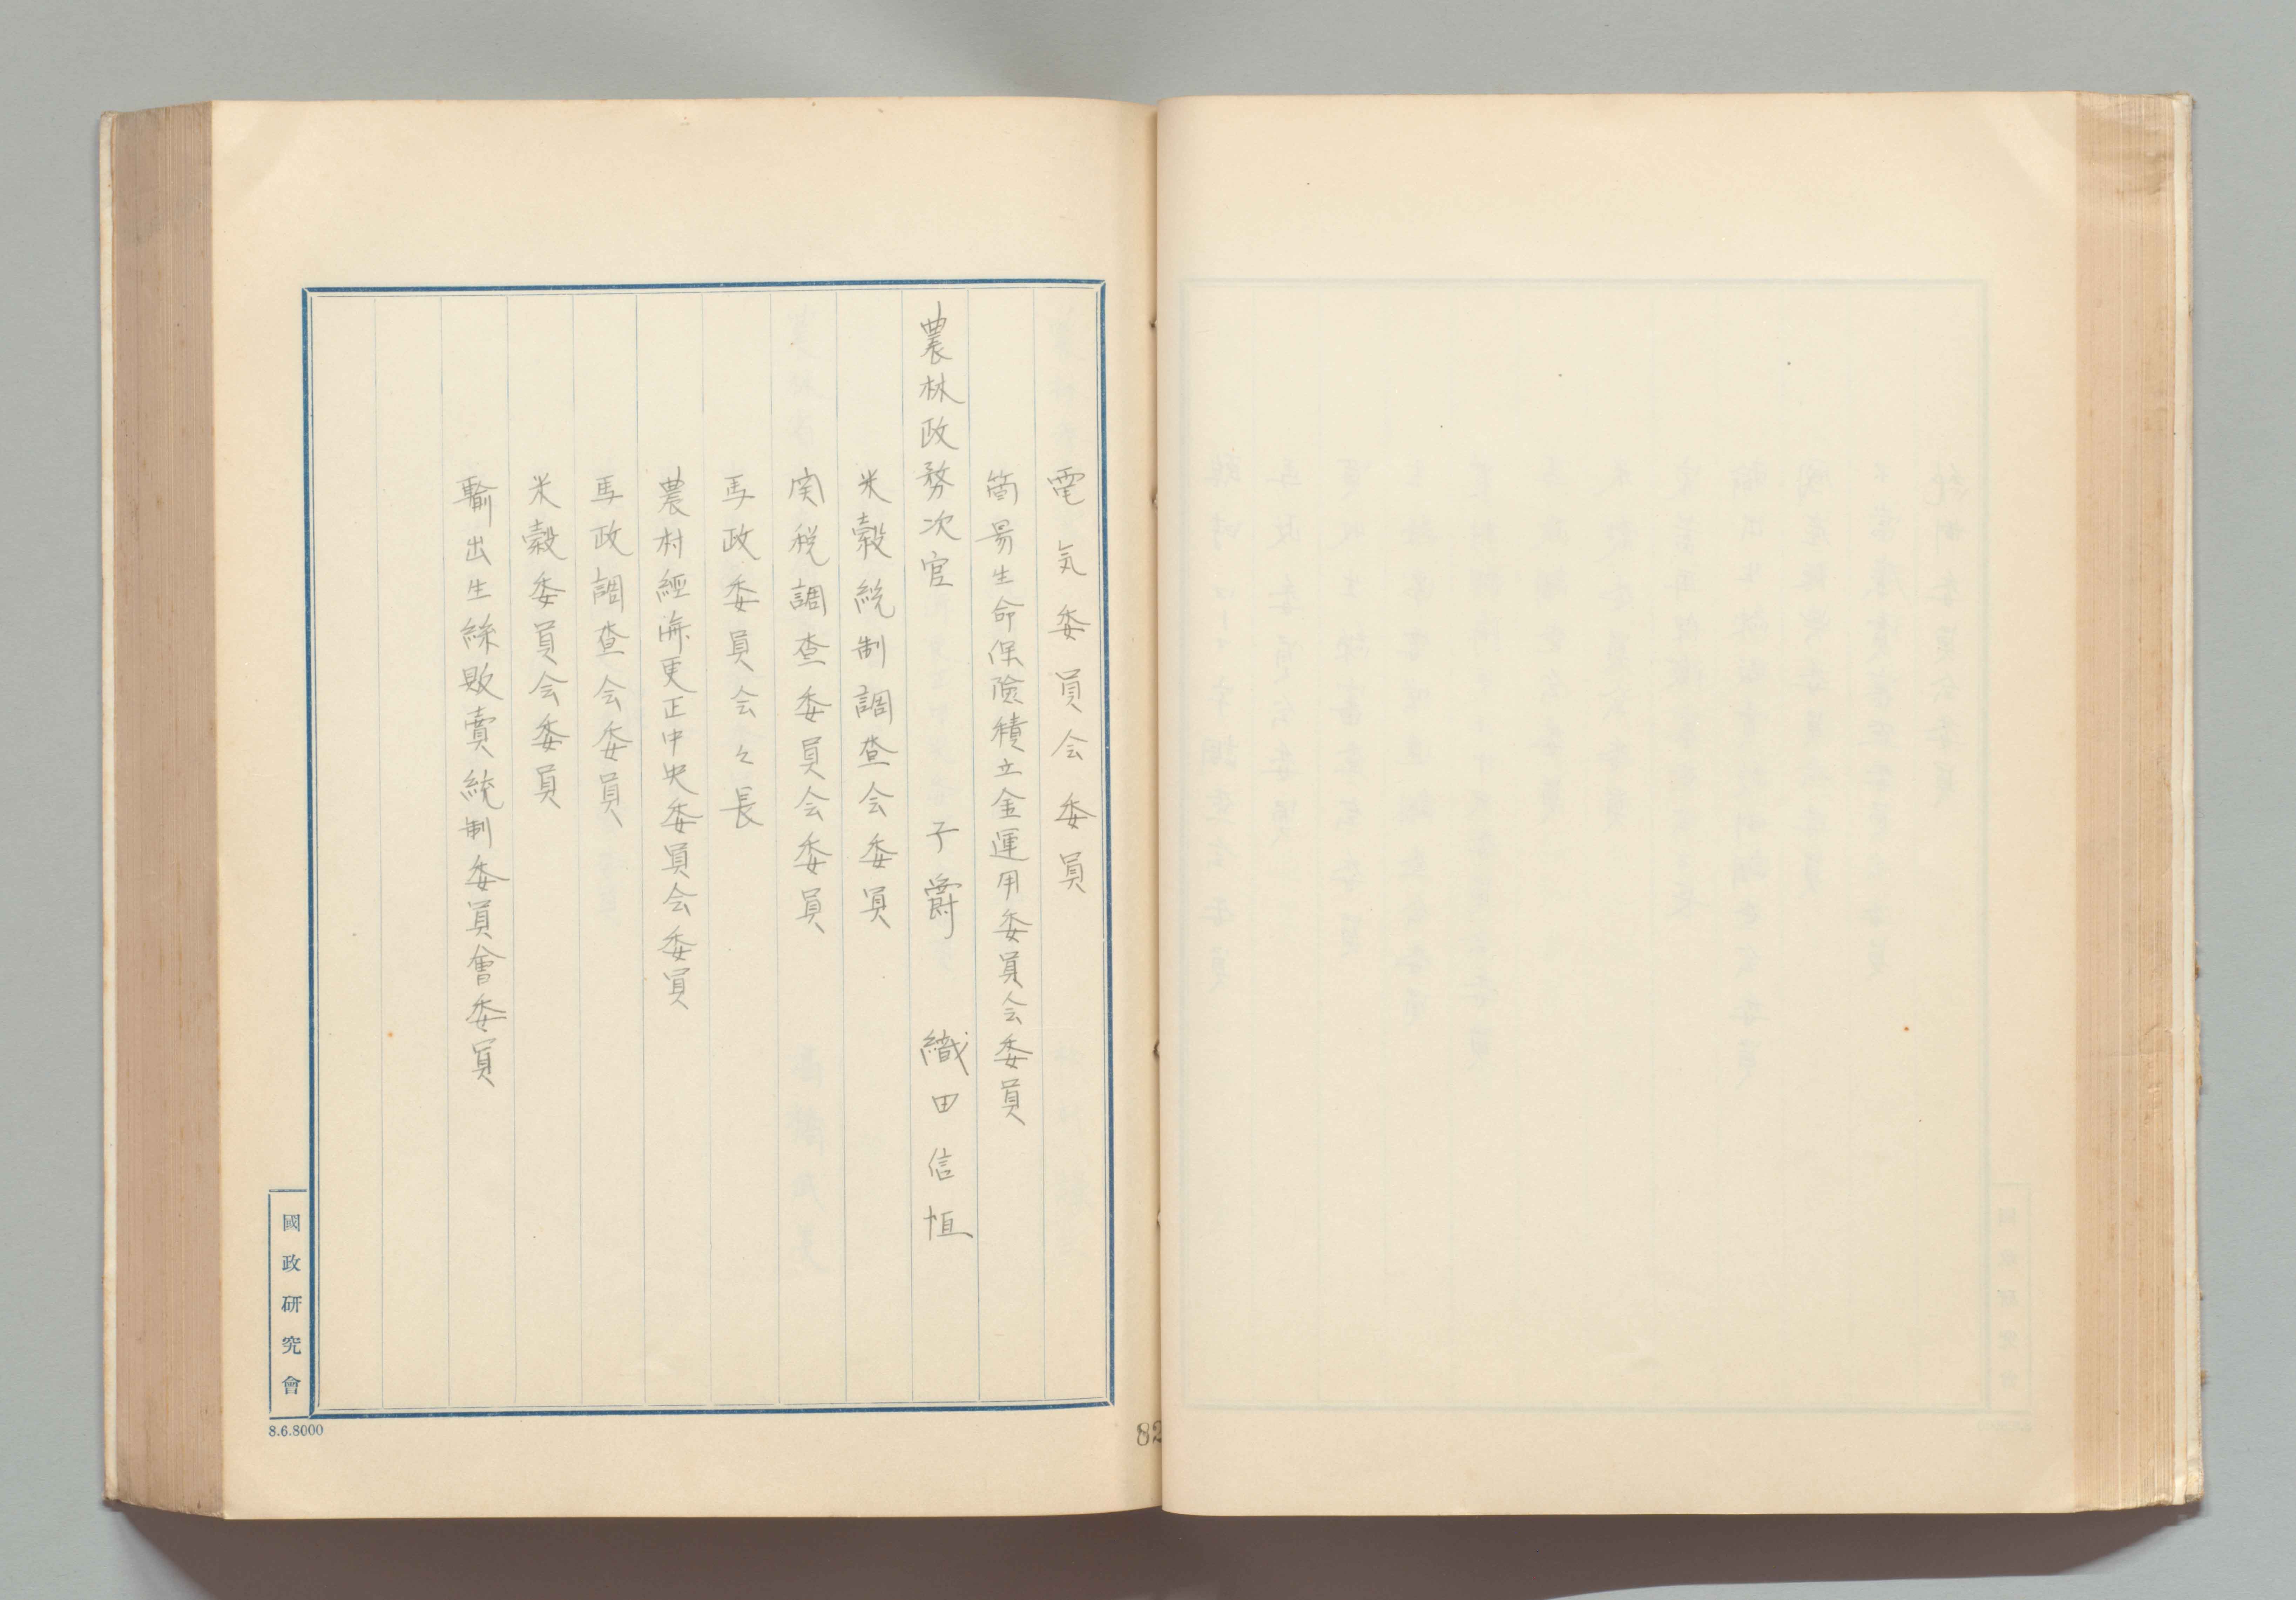 電気委員会委員
簡易生命保険積立金運用委員会委員
農林政務次官 子爵 織田信恒
米穀統制調査会委員
関税調査委員会委員
馬政委員会々長
農村経済更正中央委員会委員
馬政調査会委員
米穀委員会委員
輸出生絲販賣統制委員會委員
國政研究會
8.6.8000
82